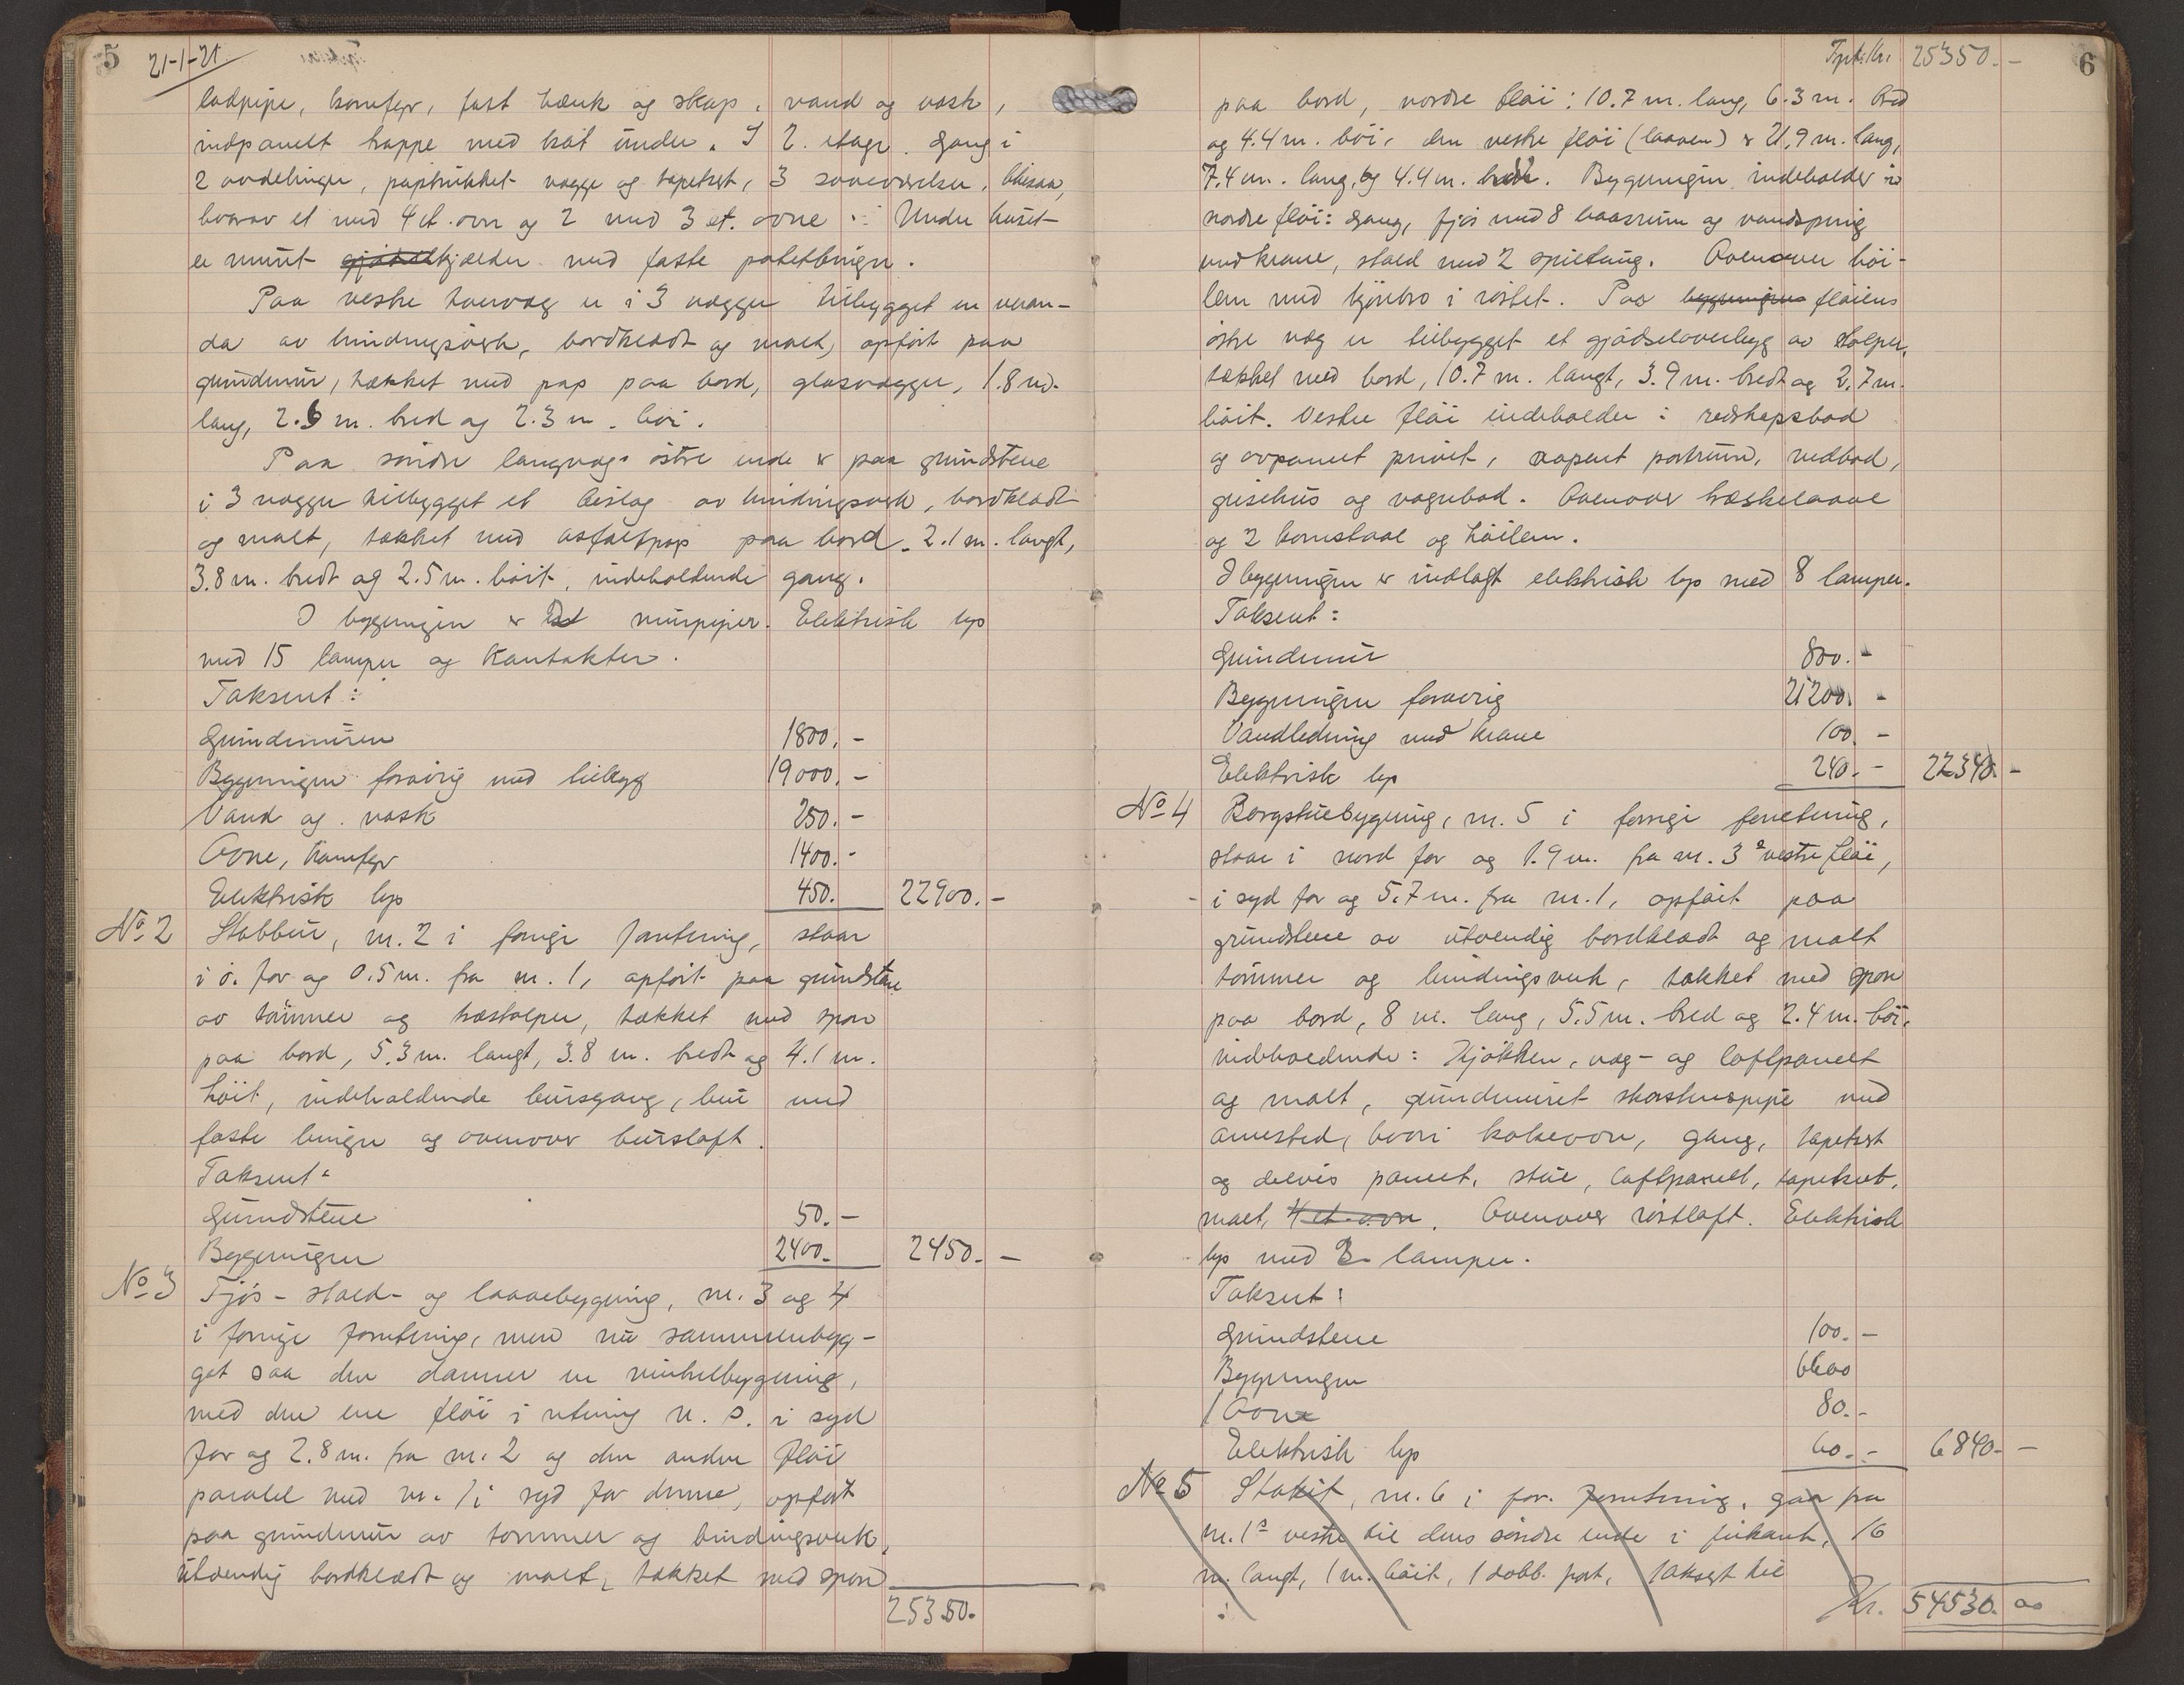 5
21-1-21
ladpipe, komfyr, fast bænk og skap, vand og vask,
indpanelt trappe med kot under. I 2. etage. Gang i
2 avdelinger, paptrukket vægge og tapetsert, 3 soveværelser, likesaa,
hvorav et med 4 et. ovn og 2 med 3 et. ovne. Under huset
er muret kjælder med faste potetbinger.
Paa vestre tverveg er i 3 vægger tilbygget en veran-
da av bindingsverk, bordklædt og malt, opført paa
grundmur, tækket med pap paa bord, glasvægger, 1.8 m.
lang, 2.6 m. bred og 2.3 m. høi.
Paa søndre langvægs østre ende er paa grundstene
i 3 vægger tilbygget et bislag av bindingsverk, bordklædt
og malt, tækket med asfaltpap paa bord. 2.1 m. langt,
3.8 m. bredt og 2.5 m. høit, indeholdende gang.
I bygningen er murpiper. Elektrisk lys
med 15 lamper og Kontakter.
Taksert:
Grundmuren 1800.-
Bygningen forøvrig med tilbygg 19000.-
Vand og vask 250.-
Ovne, Komfyr 1400.-
Elektrisk lys 450. 22900.-
No 2 Stabbur, nr. 2 i forrige forretning, staar
i ø. for og 0.5 m. fra nr. 1, opført paa grundstene
av tømmer og træstolper, tækket med spon
paa bord, 5.3 m. langt, 3.8 m. bredt og 4.1 m.
høit, indeholdende bursgang, bur med
faste binger og ovenover bursloft.
Taksert:
Grundstene 50.-
Bygningen 2400.- 2450.-
No 3 Fjøs- stald- og laavebygning, nr. 3 og 4
i forrige forretning, men nu sammenbyg-
get saa den danner en vinkelbygning,
med den ene fløi i retning n. s. i syd
for og 2.8 m. fra nr. 2 og den anden fløi
paralel med nr. 1 i syd for denne, opført
paa grundmur av tømmer og bindingsverk,
utvendig bordklædt og malt, tækket med spon
25350.
6
Tpt. Kr. 25350.-
paa bord, nordre fløi: 10.7 m. lang, 6.3 m. bred
og 4.4 m. høi, den vestre fløi (laaven) er 21.9 m. lang,
7.4 m. lang, og 4.4 m. Bygningen indeholder i
nordre fløi: gang, fjøs med 8 baasrum og vandspring
med krane, stald med 2 spiltaug. Ovenover høi-
lem med kjørebro i røstet. Paa bygningens fløiens
østre væg er tilbygget et gjødseloverbygg av stolper,
tækket med bord, 10.7 m. langt, 3.9 m. bredt og 2.7 m.
høit. Vestre fløi indeholder: redskapsbod
og avpanelt privet, aapent portrum, vedbod,
grisehus og vognbod. Ovenover træskelaave
og 2 kornstaal og høilem.
I bygningen er indlagt elektrisk lys med 8 lamper.
Taksert:
Grundmur 800.-
Bygningen forøvrig 21200.-
Vandledning med krane 100.-
Elektrisk lys 240.- 22340.-
No 4 Borgstuebygning, nr. 5 i forrige forretning,
staar i nord for og 1.9 m. fra nr. 3s vestre fløi,
i syd for og 5.7 m. fra nr. 1, opført paa
grundstene av utvendig bordklædt og malt
tømmer og bindingsverk, tækket med spon
paa bord, 8 m. lang, 5.5 m. bred og 2.4 m. høi,
indeholdende: Kjøkken, væg- og loftpanelt
og malt, grundmuret skorstenspipe med
arnested, hvori kokeovn, gang, tapetsert
og delvis panelt, stue, loftpanelt, tapetsert,
malt, 4 et. ovn. Ovenover røstloft. Elektrisk
lys med 2 lamper.
Taksert:
Grundstene 100.-
Bygningen 6600
1 Ovne 80.-
Elektrisk lys 60.- 6840.-
No 5 Stakit, nr. 6 i for. forretning, gaar fra
nr. 1s vestre til dens søndre ende i firkant, 16
m. langt, 1 m. høit, 1 dobb. port, taksert til
Kr. 54530.00